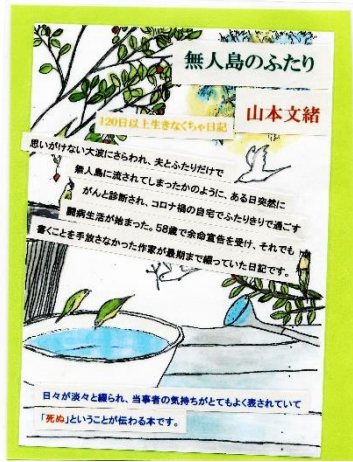 無人島のふたり
山本文緒
120日以上生きなくちゃ日記
思いがけない大波にさらわれ、夫とふたりだけで
無人島に流されてしまったかのように、ある日突然に
がんと診断され、コロナ禍の自宅でふたりきりで過ごす
闘病生活が始まった。58歳で余命宣告を受け、それでも
書くことを手放さなかった作家が最期まで綴っていた日記です。
日々が淡々と綴られ、当事者の気持ちがとてもよく表されていて
「死ぬ」ということが伝わる本です。